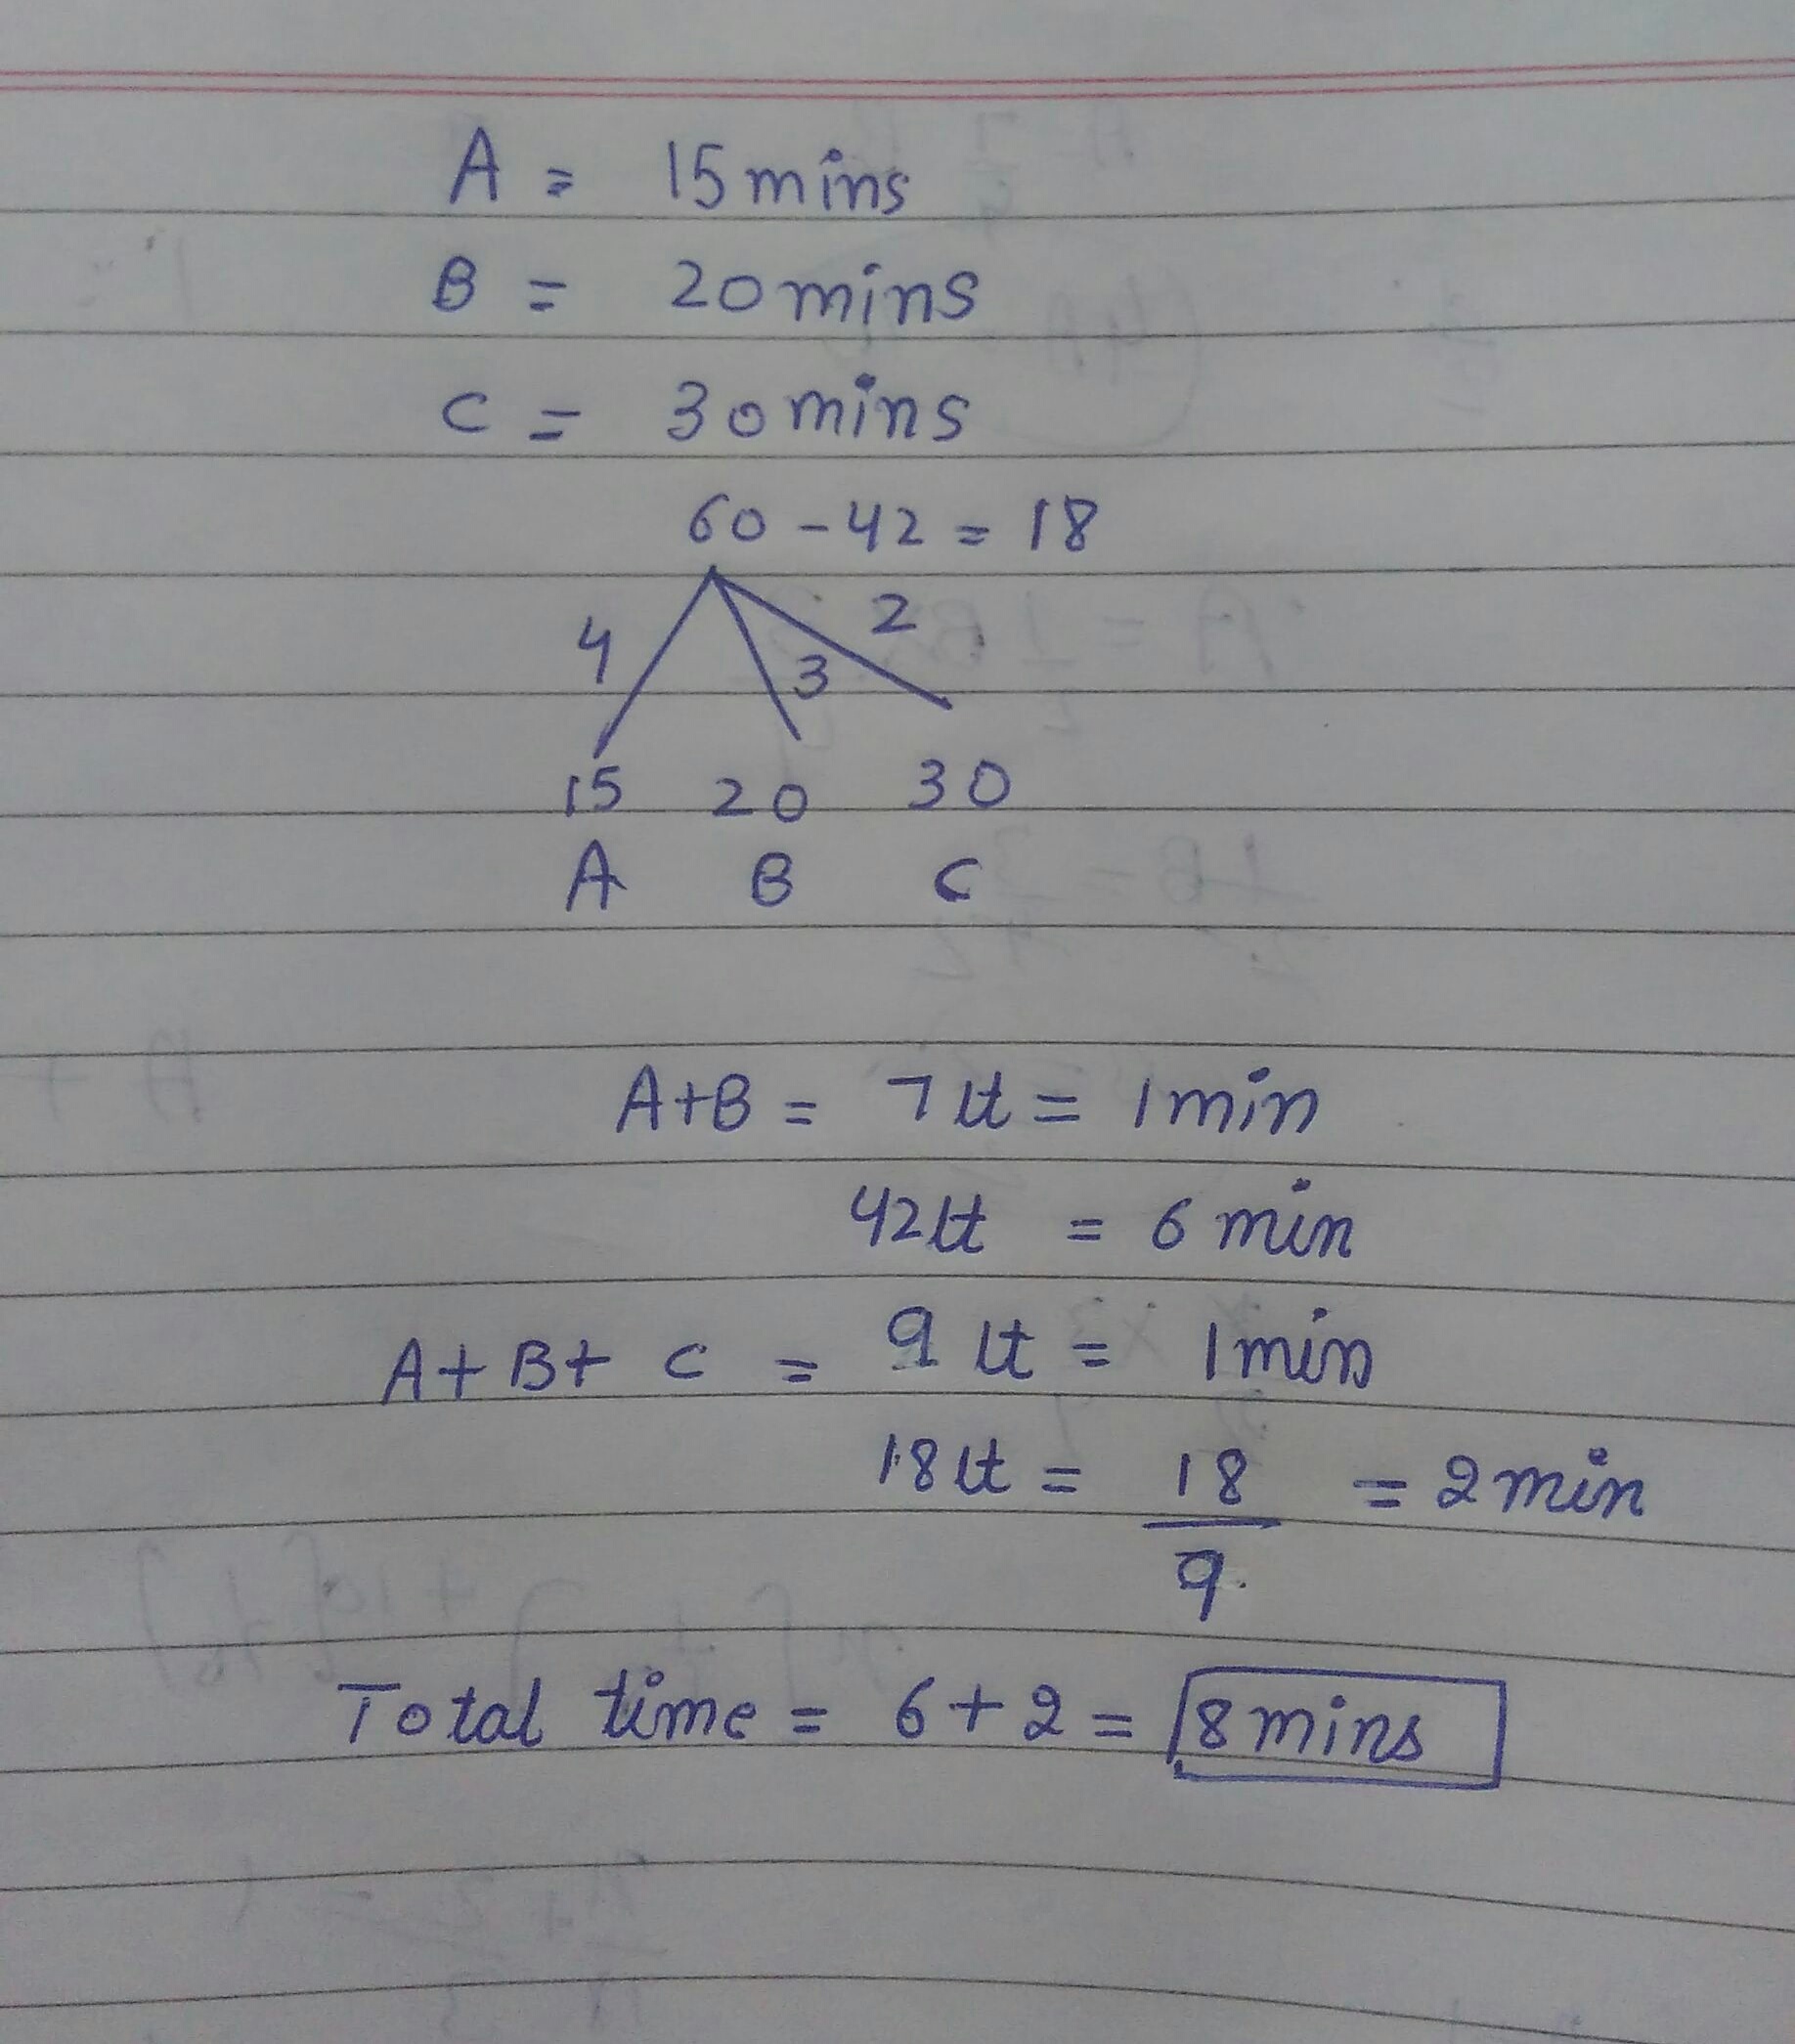 A = 15 mins
B = 20 mins
C = 30 mins
60 - 42 = 18
4 3 2
15 20 30
A B C
A+B = 7 lt = 1 min
42 lt = 6 min
A+B+C = 9 lt = 1 min
18 lt = 18/9 = 2 min
Total time = 6+2 = 8 mins